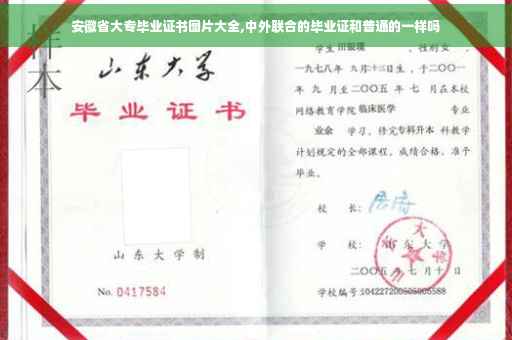 安徽省大专毕业证书图片大全,中外联合的毕业证和普通的一样吗
样本
山东大学
毕业证书
山东大学制
No. 0417584
学生 田
性别女,
一九七八年九月十二日生,于二〇〇一
年 九 月至二〇〇五 年 七 月在本校
网络教育学院 临床医学 专业
业余 学习,修完专科升本 科教学
计划规定的全部课程,成绩合格,准予
毕业。
校 长:
学 校: 山东大学
二〇〇五年七月十日
学校编号: